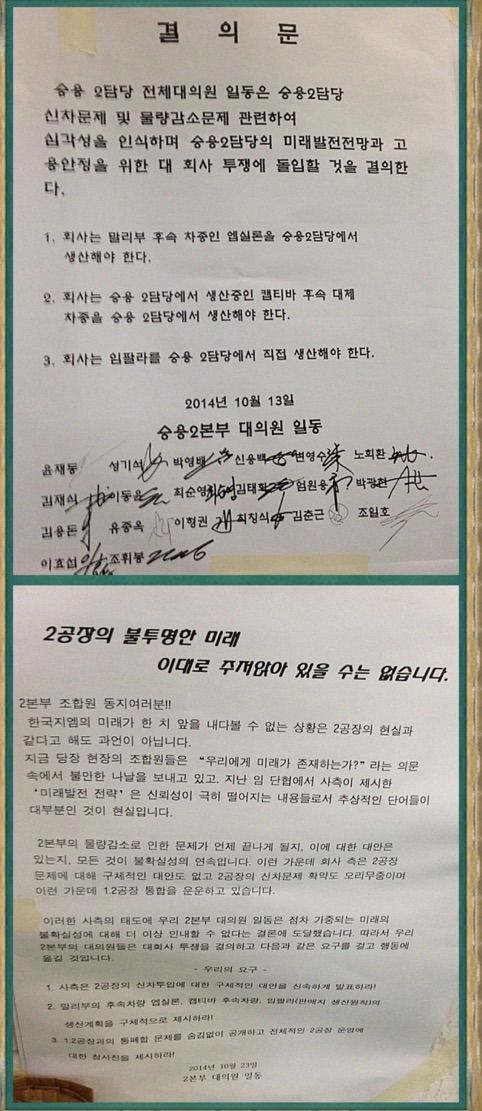 결 의 문
승용 2담당 전체대의원 일동은 승용2담당
신차문제 및 물량감소문제 관련하여
심각성을 인식하며 승용2담당의 미래발전전망과 고
용안정을 위한 대 회사 투쟁에 돌입할 것을 결의한
다.
1. 회사는 말리부 후속 차종인 엡실론을 승용2담당에서
생산해야 한다.
2. 회사는 승용 2담당에서 생산중인 캡티바 후속 대체
차종을 승용 2담당에서 생산해야 한다.
3. 회사는 임팔라를 승용 2담당에서 직접 생산해야 한다.
2014년 10월 13일
승용2본부 대의원 일동
윤재동 성기석 박영배 신용백 변영수 노희환
김재식 이동윤 최순영 김태 엄원용 박광현
김용돈 유중옥 이형권 최칭식 김춘근 조일호
이효섭 조휘봉
2공장의 불투명한 미래
이대로 주저앉아 있을 수는 없습니다.
2본부 조합원 동지여러분!!
한국지엠의 미래가 한 치 앞을 내다볼 수 없는 상황은 2공장의 현실과
같다고 해도 과언이 아닙니다.
지금 당장 현장의 조합원들은 “우리에게 미래가 존재하는가?”라는 의문
속에서 불안한 나날을 보내고 있고. 지난 임 단협에서 사측이 제시한
‘미래발전 전략’은 신뢰성이 극히 떨어지는 내용들로서 추상적인 단어들이
대부분인 것이 현실입니다.
2본부의 물량감소로 인한 문제가 언제 끝나게 될지, 이에 대한 대안은
있는지, 모든 것이 불확실성의 연속입니다. 이런 가운데 회사 측은 2공장
문제에 대해 구체적인 대안도 없고 2공장의 신차문제 확약도 오리무중이며
이런 가운데 1.2공장 통합을 운운하고 있습니다.
이러한 사측의 태도에 우리 2본부 대의원 일동은 점차 가중되는 미래의
불확실성에 대해 더 이상 인내할 수 없다는 결론에 도달했습니다. 따라서 우리
2본부의 대의원들은 대회사 투쟁을 결의하고 다음과 같은 요구를 걸고 행동에
옮길 것입니다.
- 우리의 요구 -
1. 사측은 2공장의 신차투입에 대한 구체적인 대안을 신속하게 발표하라!
2. 말리부의 후속차량 엡실론, 캡티바 후속차량, 임팔라(판매지 생산원칙)의
생산계획을 구체적으로 제시하라!
3. 1.2공장과의 통폐합 문제를 숨김없이 공개하고 전체적인 2공장 운영에
대한 청사진을 제시하라!
2014년 10월 23일
2본부 대의원 일동